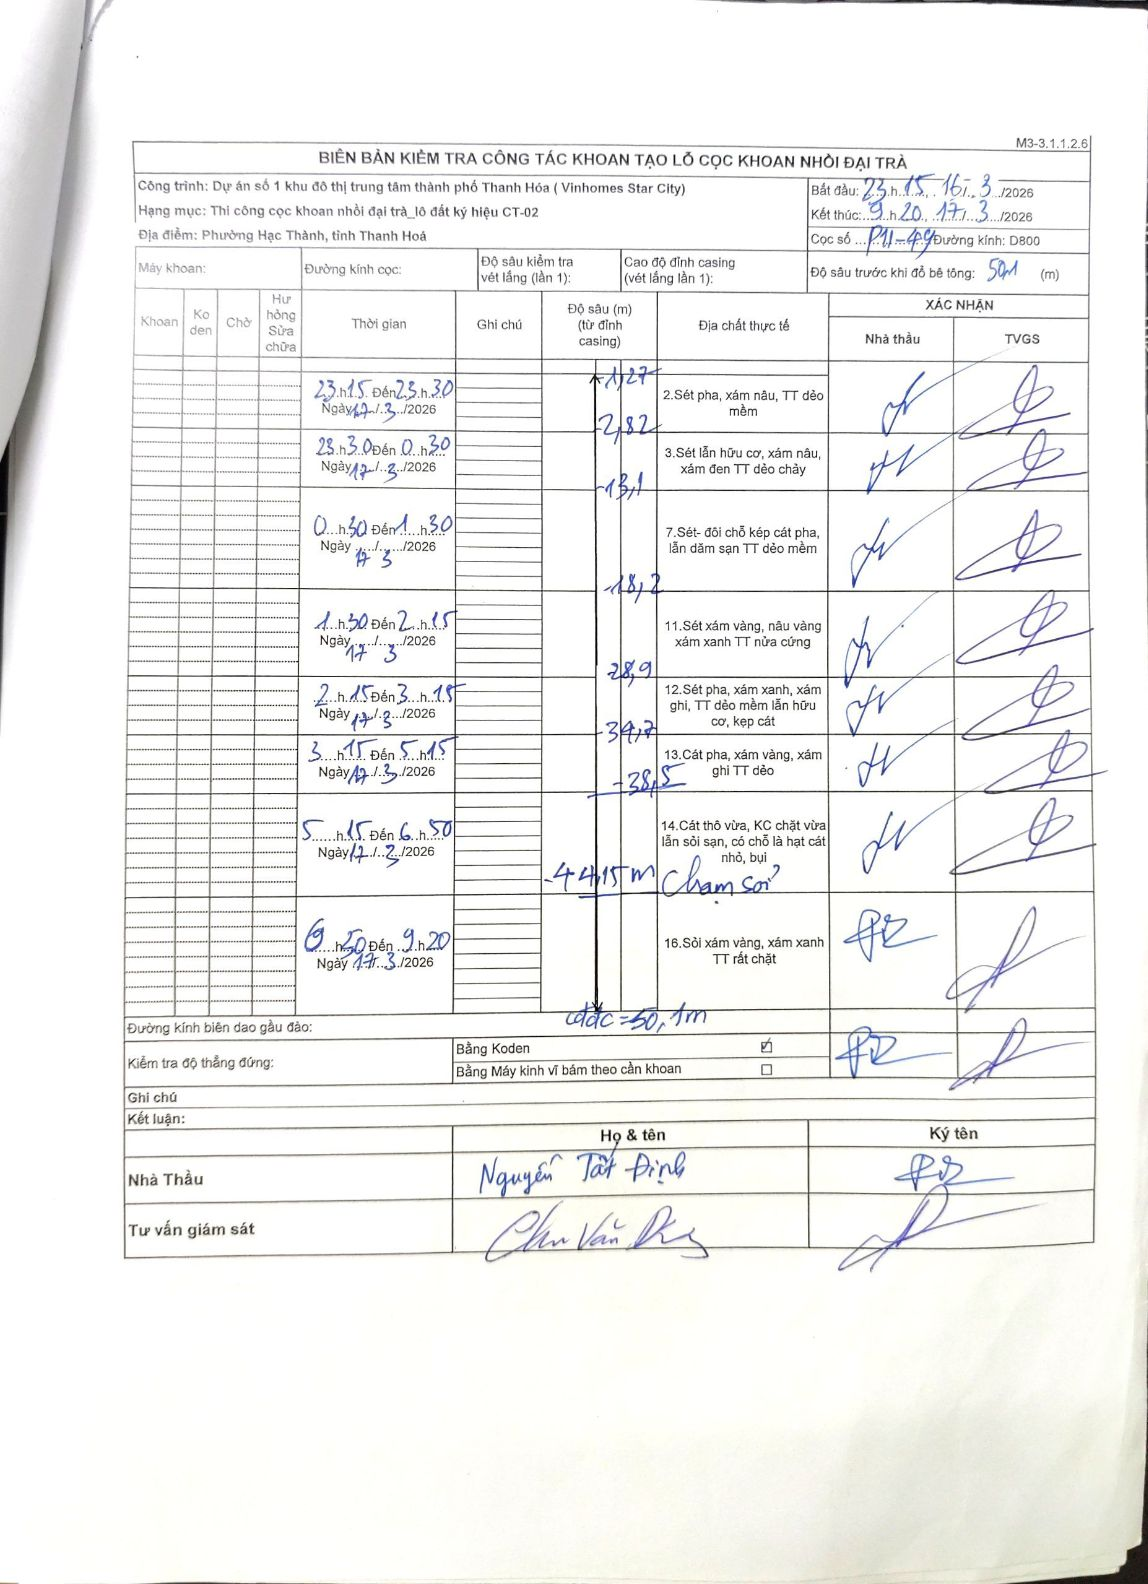 M3-3.1.1.2.6
BIÊN BẢN KIỂM TRA CÔNG TÁC KHOAN TẠO LỖ CỌC KHOAN NHỒI ĐẠI TRÀ
Công trình: Dự án số 1 khu đô thị trung tâm thành phố Thanh Hóa ( Vinhomes Star City)
Hạng mục: Thi công cọc khoan nhồi đại trà_lô đất ký hiệu CT-02
Địa điểm: Phường Hạc Thành, tỉnh Thanh Hoá
Bắt đầu: 23.h.15, 16/.3/2026
Kết thúc: 9 h 20, 17/3/2026
Cọc số P11-49 Đường kính: D800
Máy khoan:
Đường kính cọc:
Độ sâu kiểm tra vét lắng (lần 1):
Cao độ đỉnh casing (vét lắng lần 1):
Độ sâu trước khi đổ bê tông: 50,1 (m)
Khoan
Ko den
Chờ
Hư hỏng Sửa chữa
Thời gian
Ghi chú
Độ sâu (m) (từ đỉnh casing)
Địa chất thực tế
XÁC NHẬN
Nhà thầu
TVGS
-1,27
23.h15 Đến 23.h.30
Ngày 17/.3../2026
2.Sét pha, xám nâu, TT dẻo mềm
-2,82
23 h.30 Đến 0..h.30
Ngày 17/.3../2026
3.Sét lẫn hữu cơ, xám nâu, xám đen TT dẻo chảy
-13,1
0...h.30 Đến 1...h.30
Ngày 17/3/2026
7.Sét- đôi chỗ kép cát pha, lẫn dăm sạn TT dẻo mềm
-18,2
1...h.30 Đến 2...h.15
Ngày 17/3/2026
11.Sét xám vàng, nâu vàng xám xanh TT nửa cứng
-28,9
2..h.15 Đến 3...h.15
Ngày 17/.3../2026
12.Sét pha, xám xanh, xám ghi, TT dẻo mềm lẫn hữu cơ, kẹp cát
-34,7
3....h.15 Đến 5..h15
Ngày 17/.3../2026
13.Cát pha, xám vàng, xám ghi TT dẻo
-38,5
5......h.15 Đến 6..h.50
Ngày 17./..3../2026
14.Cát thô vừa, KC chặt vừa lẫn sỏi sạn, có chỗ là hạt cát nhỏ, bụi
-44,15 m Chạm sỏi
6.....h.50 Đến ..9.h20
Ngày .17./..3../2026
16.Sỏi xám vàng, xám xanh TT rất chặt
cđđc = 50,1m
Đường kính biên dao gầu đào:
Kiểm tra độ thẳng đứng:
Bằng Koden ☑
Bằng Máy kinh vĩ bám theo cần khoan ☐
Ghi chú
Kết luận:
Họ & tên
Ký tên
Nhà Thầu
Nguyễn Tất Định
Tư vấn giám sát
Chu Văn